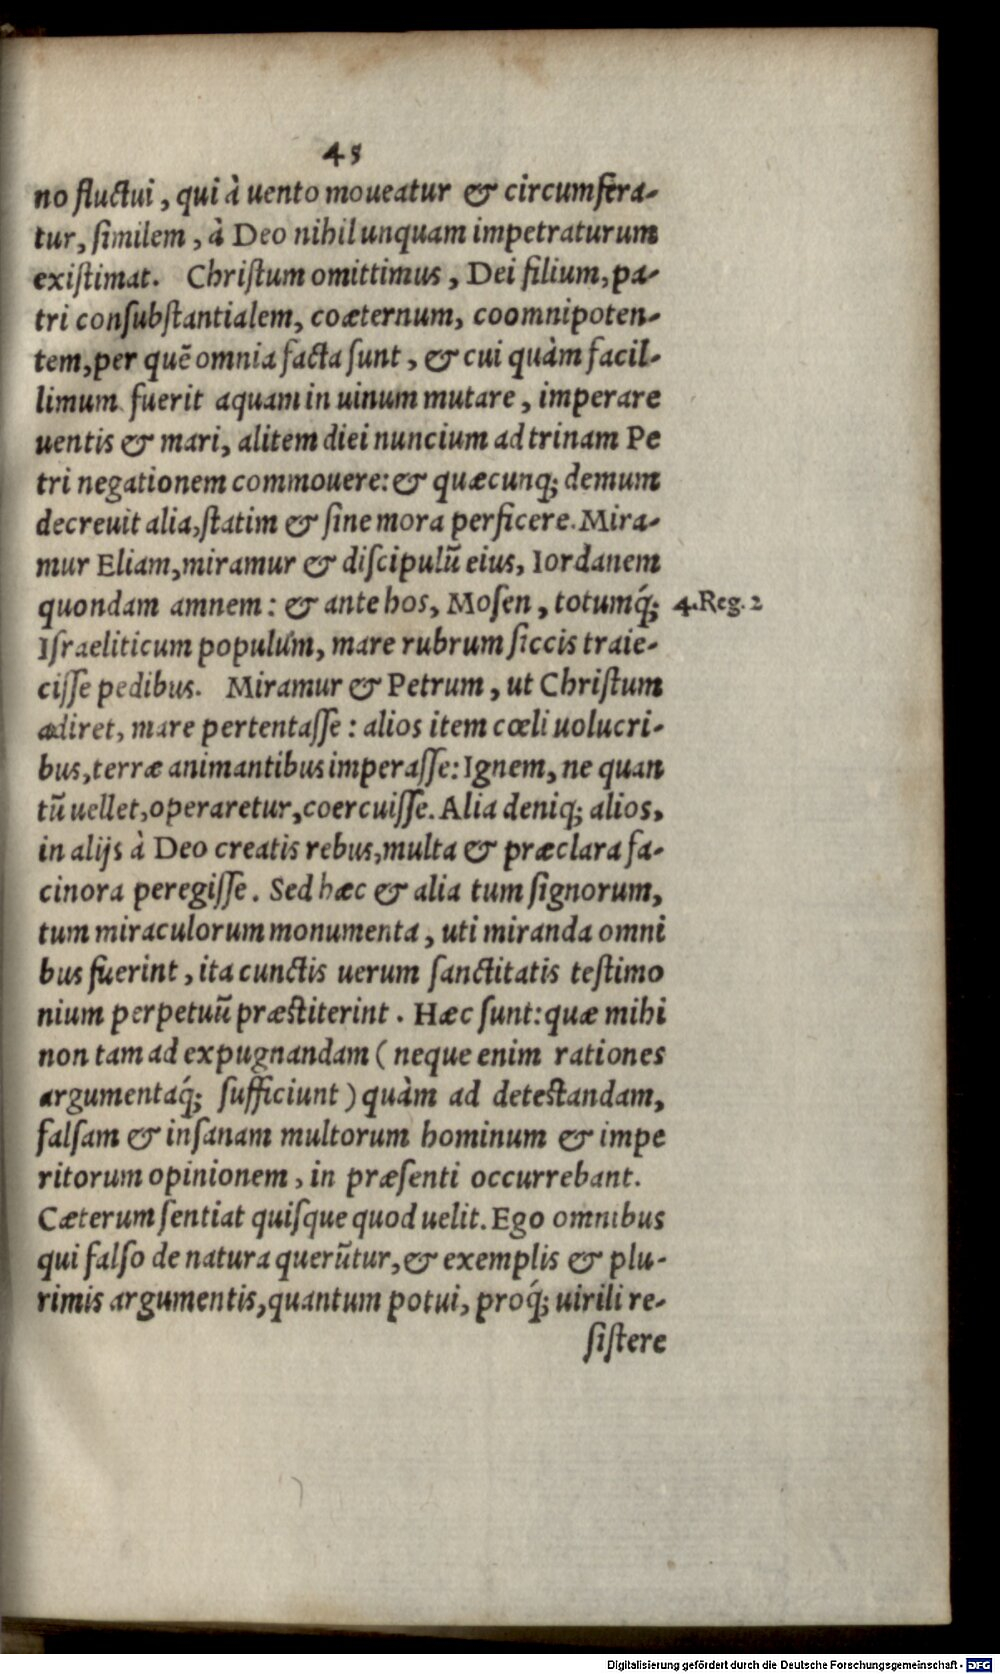 45
no fluctui, qui à uento moueatur & circumfera-
tur, ſimilem, à Deo nihil unquam impetraturum
exiſtimat. Chriſtum omittimus, Dei filium, pa-
tri conſubſtantialem, coæternum, coomnipoten-
tem, per quẽ omnia facta ſunt, & cui quàm facil-
limum fuerit aquam in uinum mutare, imperare
uentis & mari, alitem diei nuncium ad trinam Pe
tri negationem commouere: & quæcunq; demum
decreuit alia, ſtatim & ſine mora perficere. Mira-
mur Eliam, miramur & diſcipulũ eius, Iordanem
quondam amnem: & ante hos, Moſen, totumq́;
4. Reg. 2
Iſraeliticum populum, mare rubrum ſiccis traie-
ciſſe pedibus. Miramur & Petrum, ut Chriſtum
adiret, mare pertentaſſe: alios item cœli uolucri-
bus, terræ animantibus imperaſſe: Ignem, ne quan
tũ uellet, operaretur, coercuiſſe. Alia deniq; alios,
in alijs à Deo creatis rebus, multa & præclara fa-
cinora peregiſſe. Sed hæc & alia tum ſignorum,
tum miraculorum monumenta, uti miranda omni
bus fuerint, ita cunctis uerum ſanctitatis teſtimo
nium perpetuũ præſtiterint. Hæc ſunt: quæ mihi
non tam ad expugnandam (neque enim rationes
argumentaq́; ſufficiunt) quàm ad deteſtandam,
falſam & inſanam multorum hominum & impe
ritorum opinionem, in præſenti occurrebant.
Cæterum ſentiat quiſque quod uelit. Ego omnibus
qui falſo de natura querũtur, & exemplis & plu-
rimis argumentis, quantum potui, proq́; uirili re-
ſiſtere
Digitalisierung gefördert durch die Deutsche Forschungsgemeinschaft - DFG